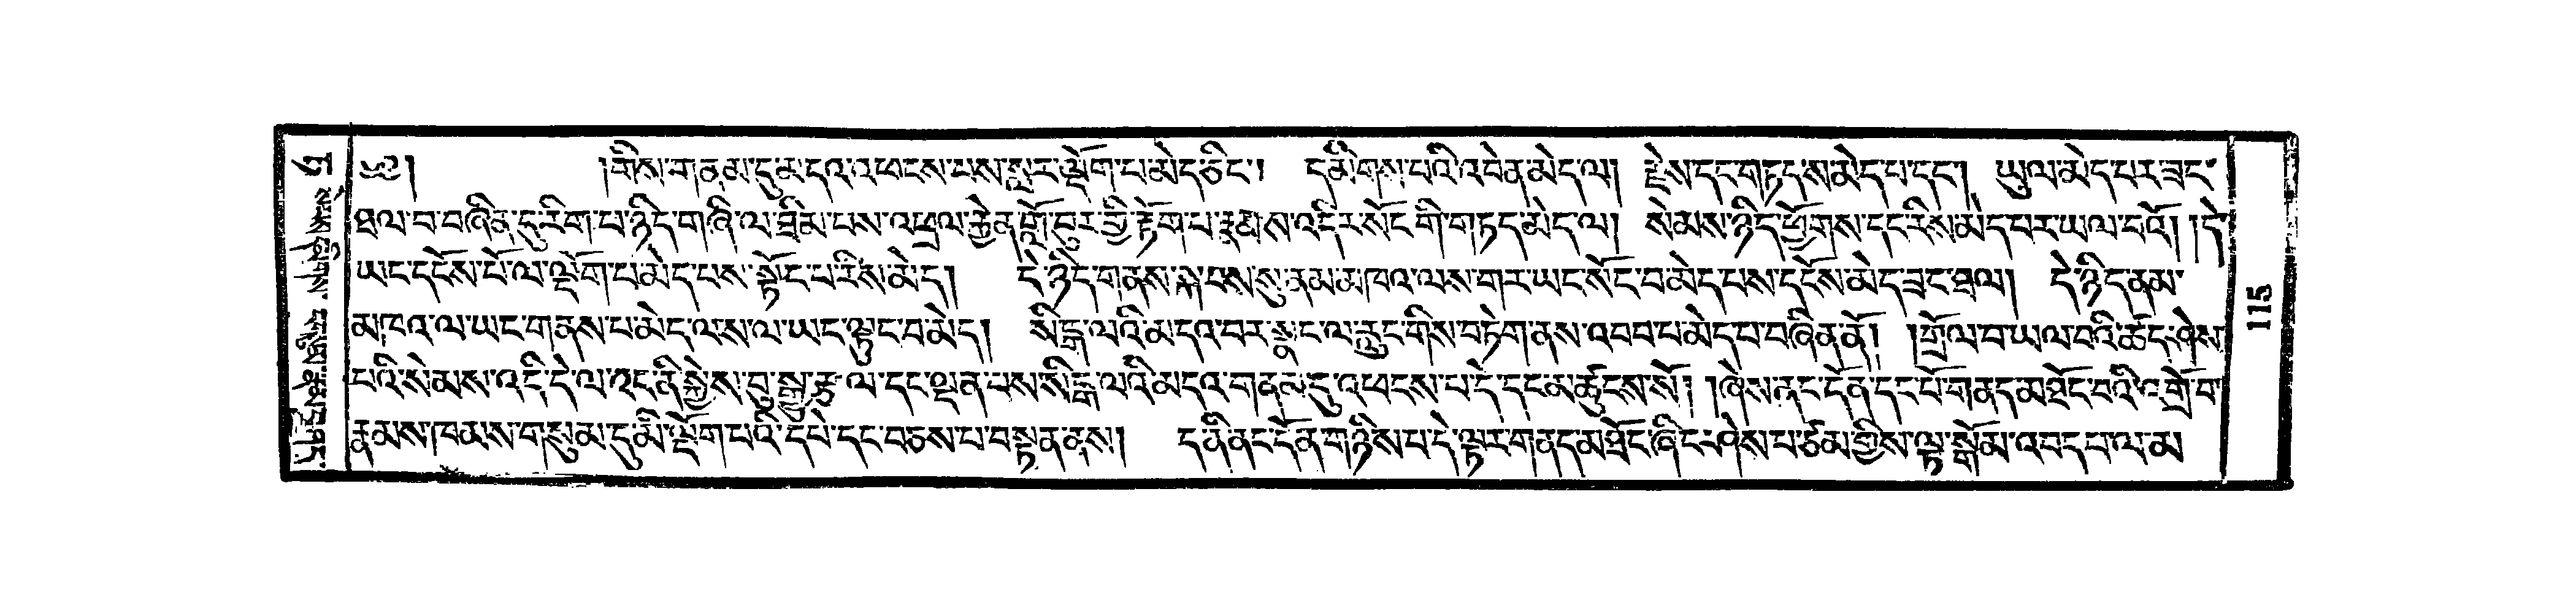 ༄༅། །གིས་གནམ་དུ་མདའ་འཕངས་པས་སླར་ལྡོག་པ་མེད་ཅིང་། དམིགས་པའི་འབེན་མེད་ལ། རྗེས་དང་གཏད་ས་མེད་པ་དང་། ཡུལ་མེད་པར་ཟང་
ཐལ་བ་བཞིན་དུ་རིག་པ་ཉིད་གཞི་ལ་ཐིམ་པས་འཕྲལ་རྐྱེན་གློ་བུར་གྱི་རྟོག་པ་རྣམས་འདིར་སོང་གི་གཏད་མེད་ལ། སེམས་ཉིད་ཕྱོགས་དང་རིས་མེད་པར་ཡལ་བའོ། །དེ་
ཡང་དངོས་པོ་ལ་ལྡོག་པ་མེད་པས་སྟོང་པ་རིས་མེད། དེ་ཉིད་གནས་སྐབས་སུ་ནམ་མཁའ་ལས་གར་ཡང་སོང་བ་མེད་པས་དངོས་མེད་ཟང་ཐལ། དེ་ཉིད་ནམ་
མཁའ་ལ་ཡང་གནས་པ་མེད་ལ་ས་ལ་ཡང་ལྷུང་བ་མེད། སིངྒ་ལའི་མདའ་བར་སྣང་ལ་རླུང་གིས་བཏེག་ནས་འབབ་པ་མེད་པ་བཞིན་ནོ། །གྲོལ་བ་ཡལ་བའི་ཚོད་ཤེས་
པའི་སེམས་འདི་དེ་ལ་འང་ནི་སྐྱེས་བུ་སྒྱུ་རྩལ་དང་ལྡན་པས་སིངྒ་ལའི་མདའ་གནམ་དུ་འཕངས་པ་དེ་དང་མཚུངས་སོ། །ཞེས་ནང་དོན་དང་པོ་གནད་མཐོང་བའི་འགྲེལ་
རྣམས་ཁམས་གསུམ་དུ་མི་ལྡོག་པའི་དཔེ་དང་བཅས་པ་བསྟན་ནས། ད་ནི་ནང་དོན་གཉིས་པ་དེ་ལྟར་གནད་མཐོང་ཞིང་ཤེས་པ་ཙམ་གྱིས་ལྟ་སྒོམ་འབད་པ་ལ་མ